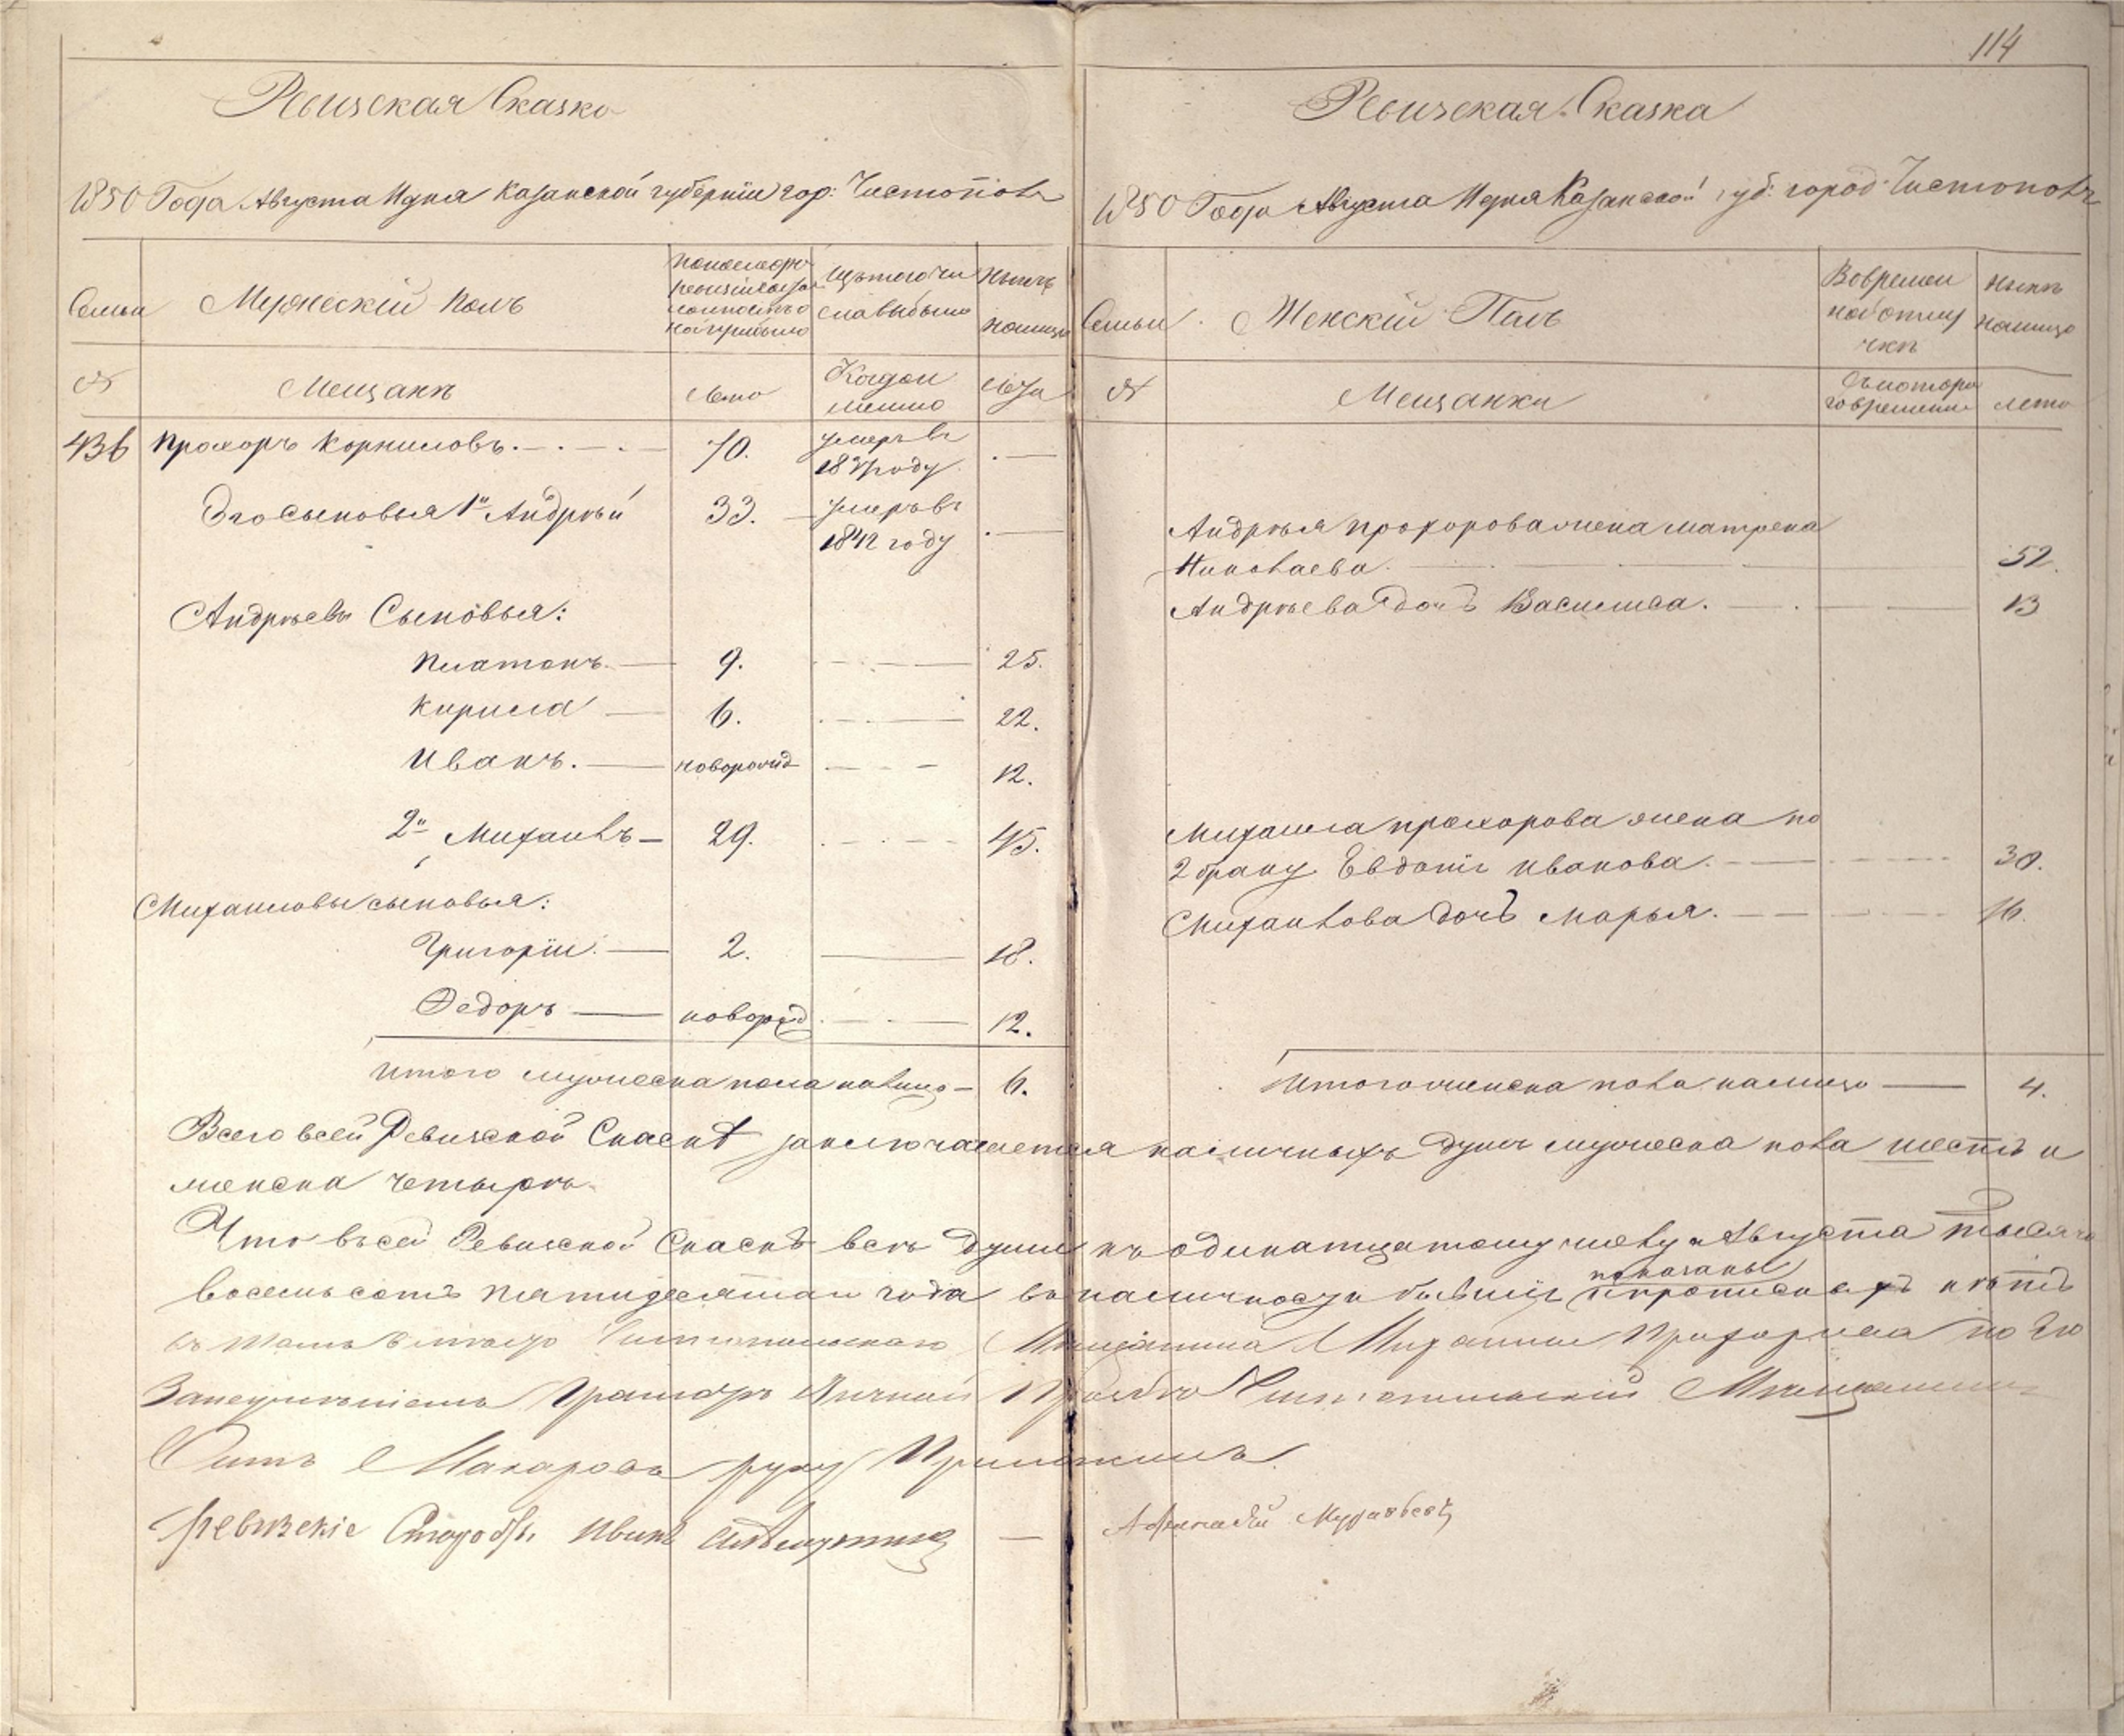 114
Ревизская Сказка
1850 Года Августа 11 дня Казанской губерніи гор: Чистополь
Семьи
Мужескій полъ
По последн
ревизіи состо
нынѣ
налицо
№
Мещанѣ
Лета
Когда и
менно
Лета
436 Прохоръ Корниловъ. 70. умеръ въ
183 году
Его сыновья 1й Андрѣй 33. умеръ въ
1842 году
Андрѣевы Сыновья:
Платонъ 9. 25.
Кирила 6. 22.
Иванъ. новорожд 12.
2й Михаилъ 29. 45.
Михаиловы сыновья:
Григорій. 2. 18.
Федоръ новорожд 12.
Итого мужеска пола налицо 6.
Ревизская Сказка
1850 Года Августа 11 дня Казанской губ: город Чистополь
Семьи
Женскій Полъ
Во времен
ной отлу
чкѣ
нынѣ
налицо
№
Мещанки
Съ которо
го времени
лета
Андрѣя Прохорова жена Матрена
Николаева. 52.
Андрѣева дочь Василиса. 13
Михаила Прохорова жена по
2 браку Евдокія Иванова. 30.
Михаилова дочь Марья. 16.
Итого женска пола налицо 4.
Всего всей Ревизской Сказкѣ заключается наличныхъ душъ мужеска пола шесть и
женска четыре.
Что въ сей Ревизской Сказкѣ всѣ души къ одинатцатому числу Августа тысяча
восемьсотъ пятидесятаго года въ наличности бывшіе показаны и прописныхъ нѣтъ
въ томъ вместо Чистопольскаго Мещанина Михаила Прохорова по его
Безграмотству личной прозьбе Чистопольскій Мещанинъ
Макаровъ руку Приложилъ.
Ревизскіе Иванъ
Афанасій